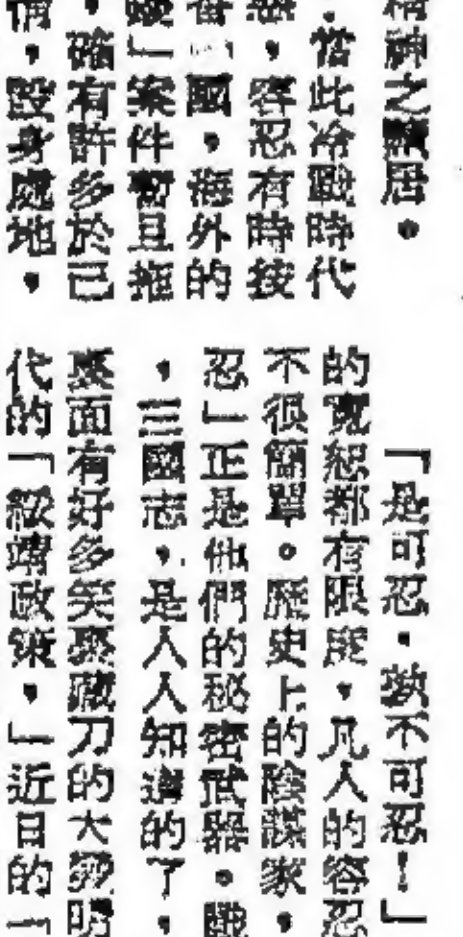 神之居。
當此冷戰時代
,容忍有時按
國,海外的
」案件暫且拖
,確有許多於己
,設身處地,
「是可忍,孰不可忍!」
的寬恕都有限度,凡人的容忍
不很簡單。歷史上的陰謀家,
忍」正是他們的秘密武器。
,三國志,是人人知道的了,
裏面有好多笑裏藏刀的大發明
代的「綏靖政策,」近日的「